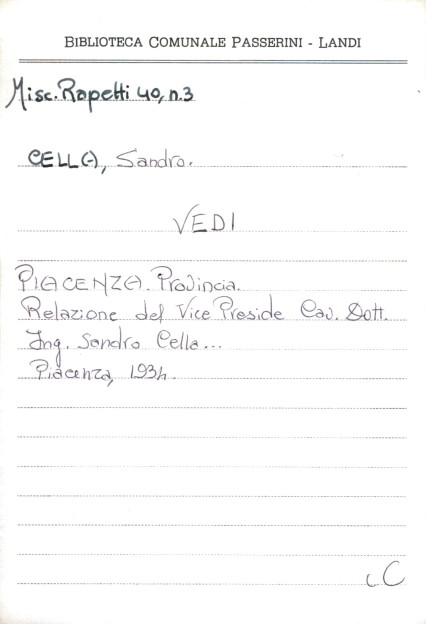 BIBLIOTECA COMUNALE PASSERINI - LANDI
Misc. Rapetti 40, n.3
CELLA, Sandro.
VEDI
PIACENZA. Provincia.
Relazione del Vice Preside Cav. Dott.
Ing. Sandro Cella...
Piacenza, 1934.
cC